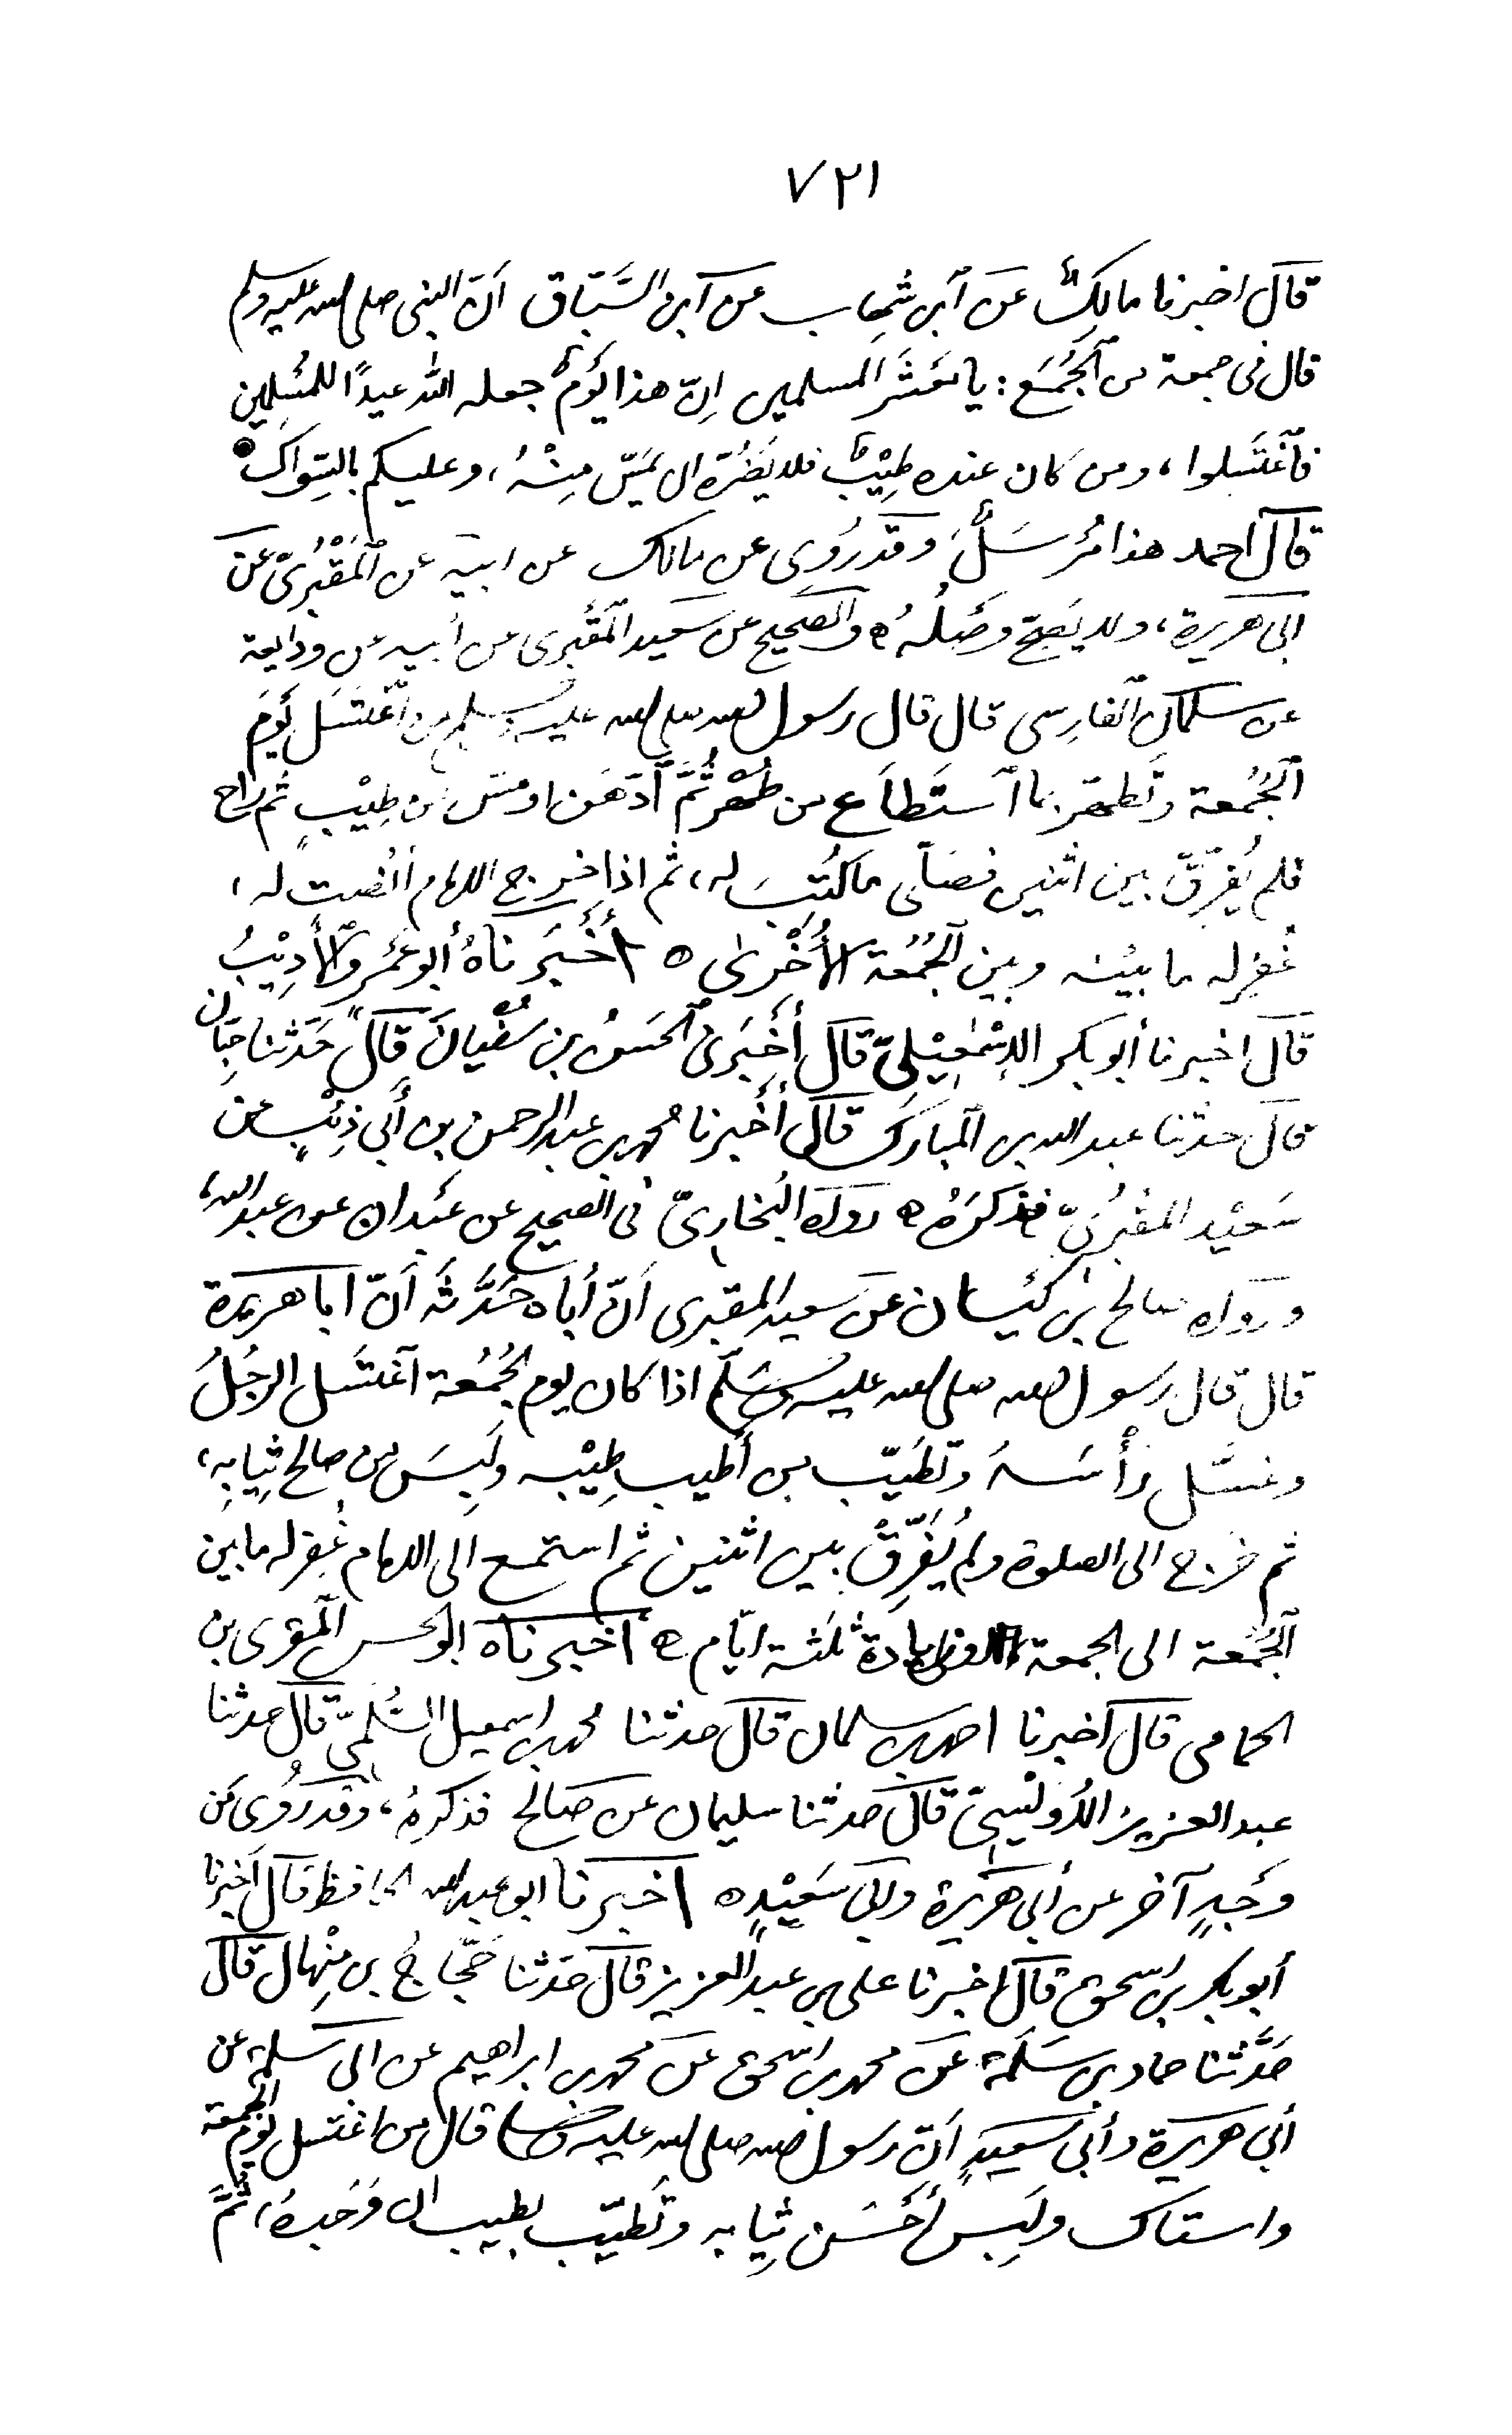 ٧٢١
قال اخبرنا مالك عن ابن شهاب عن ابن السباق أن النبى صلى الله عليه وسلم
قال فى جمعة من الجُمَع : يا معشر المسلمين إن هذا يومٌ جعله الله عيداً للمسلمين
فاغتسلوا، ومن كان عنده طِيْبٌ فلا يضره ان يمس مِنْهُ، وعليكم بالسِّواك
قال احمد هذا مُرسَلٌ وقد رُوى عن مالك عن ابيه عن المَقْبُرىّ عن
ابى هريرة، ولا يصح وَصْلُهُ ه والصحيح عن سعيد المقبرى عن أبيه عن وديعة
عن سلمان الفارسى قال قال رسول الله صلى الله عليه وسلم من اغتسل يوم
الجُمُعة وتطهر بما استطاع من طُهْر ثُمَّ ادّهن او مسّ من طِيْبٍ ثم راح
فلم يُفرِّق بين اثنين فصلّى ما كُتِبَ له، ثم اذا خرج الامام انْصت له ،
غُفِر له ما بينه وبين الجُمُعة الأُخْرىٰ ه أَخْبَرَناهُ أبو عَمْرو الأَدِيْبُ
قال اخبرنا أبو بكر الاسْمٰعِيْلىّ قال أَخْبَرَنى الحسنُ بن سُفْيانَ قال حدثنا حِبَّان
قال حدثنا عبد الله بن المبارك قال أَخْبرنا محمد بن عبد الرحمن بن أبى ذِئْبٍ عن
سَعِيْد المقبُرىّ فذكرهُ ه رواه البُخارىّ فى الصحيح عن عَبْدان عن عبد الله،
ورواه صالح بن كَيْسان عن سعيد المقبرى أنّ أباه حَدَّثَه أنّ ابا هريرة
قال قال رسول الله صلى الله عليه وسَلَّم اذا كان يوم الجُمُعة اغتسل الرجُلُ
وغسّل رأْسَهُ وتطَيّب من أطيب طِيْبه ولَبِسَ من صالح ثِيابِهِ،
ثم خرج الى الصلوة ولم يُفَرِّقْ بين اثنين ثم استمع الى الامام غُفِر له ما بين
الجُمُعة الى الجمعة وزيادة ثلٰثة ايّام ه اخبرناه ابو الحسن المقرى بن
الحمامى قال اخبرنا احمد بن سلمان قال حدثنا محمد بن اسمعيل السُّلَمىّ قال حدثنا
عبد العزيز الأُوَيْسىّ قال حدثنا سليمان عن صالح فذكرهُ، وقد رُوى من
وَجْهٍ آخر عن أبى هريرة وابى سَعِيْدٍ ه اخبرنا ابو عبد الله الحافظ قال اخبرنا
أبو بكر بن اسحٰق قال اخبرنا على بن عبد العزيز قال حدثنا حَجّاجُ بن مِنْهال قال
حَدَّثنا حماد بن سَلَمة عن محمد بن اسحٰق عن محمد بن ابراهيم عن ابى سلمة عن
أبى هريرة وأبى سعيدٍ أنّ رسول الله صلى الله عليه وسلم قال من اغتسل يوم الجمعة
واستاك ولَبِسَ أَحْسَن ثِيابه وتَطيّب بطيب ان وَجَده، ثُمَّ